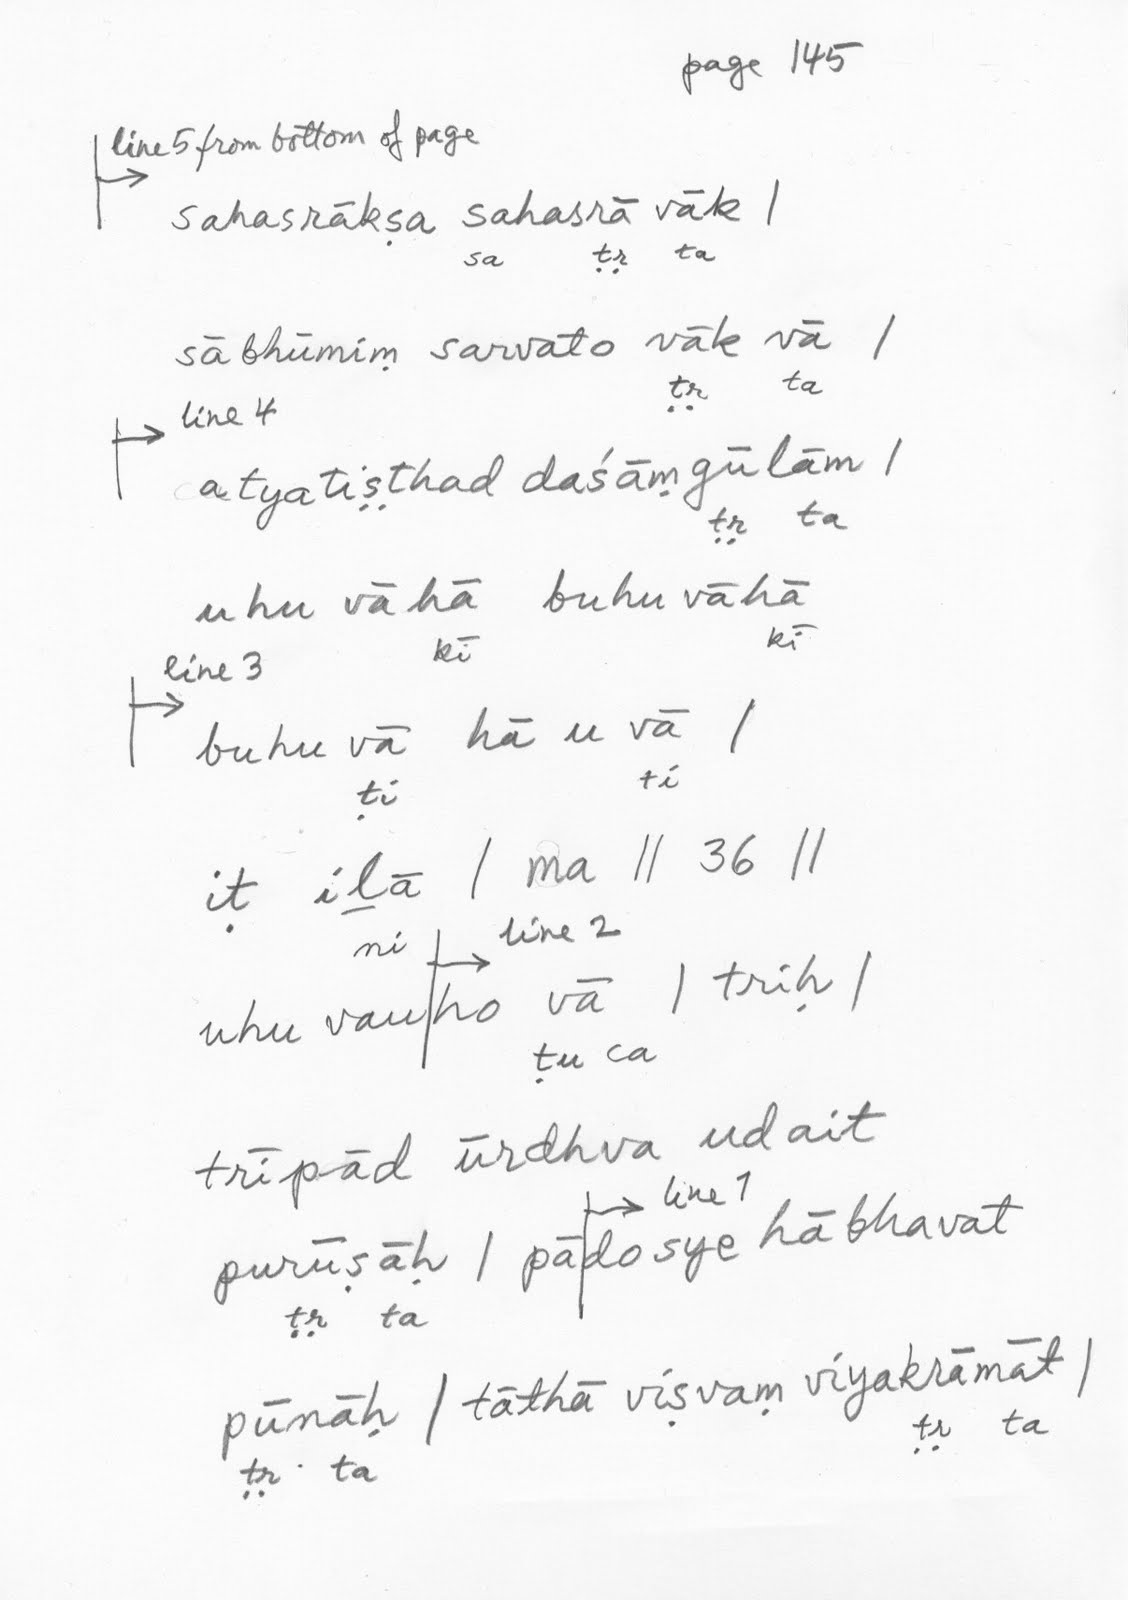 page 145
line 5 from bottom of page
sahasrākṣa sahasrā vāk |
sa ṭṛ ta
sābhūmiṃ sarvato vāk vā |
ṭṛ ta
line 4
atyatiṣṭhad daśāṃgūlām |
ṭṛ ta
uhu vāhā buhu vāhā
kī kī
line 3
buhu vā hā u vā |
ṭi ti
iṭ iḻā | ma || 36 ||
ni
line 2
uhu vauho vā | triḥ |
ṭu ca
trīpād ūrdhva udait
line 1
purūṣāḥ | pādosye hābhavat
ṭṛ ta
pūnāḥ | tāthā viṣvaṃ viyakrāmāt |
ṭṛ ta ṭṛ ta